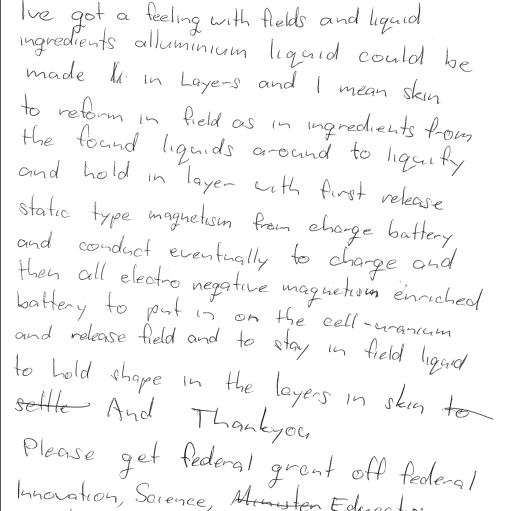 Ive got a feeling with fields and liquid
ingredients alluminium liquid could be
made in Layers and I mean skin
to reform in field as in ingredients from
the found liquids around to liquify
and hold in layer with first release
static type magnetism from charge battery
and conduct eventually to charge and
then all electro negative magnetism enriched
battery to put in on the cell-uranium
and release field and to stay in field liquid
to hold shape in the layers in skin to
settle And Thankyou
Please get federal grant off federal
Innovation, Science, Minister